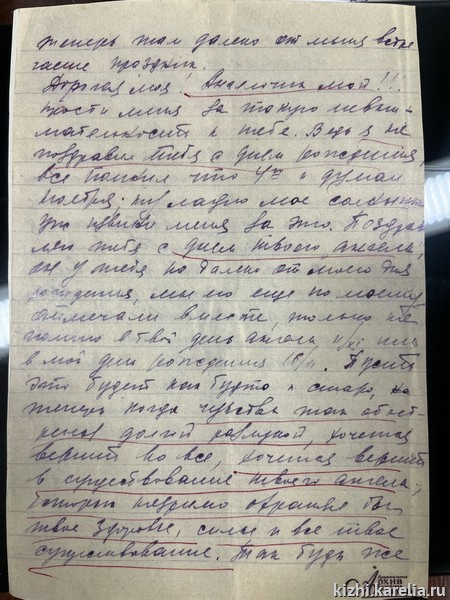 теперь там далеко от меня встре
чаете праздник.
Дорогая моя! Ангелочик мой!!!
прости меня за такую невни-
мательность к тебе. Ведь я не
поздравил тебя с днем рождения,
все помнил что 4го и думал
ноября. ну ладно мое солнышко
уж извини меня за это. Поздрав
ляю тебя с днем твоего ангела,
он у тебя не далеко от моего дня
рождения, мы его еще по моему
отмечали вместе, только не
помню в твой день ангела или
в мой день рождения. Пусть
это будет как будто и старо, но
теперь когда чувства так обост-
рены долгой разлукой, хочется
верить во все, хочется верить
в существование твоего ангела,
который незримо охранял бы
твое здоровье, силы и все твое
существование. Так будь же
АРХИВ
kizhi.karelia.ru